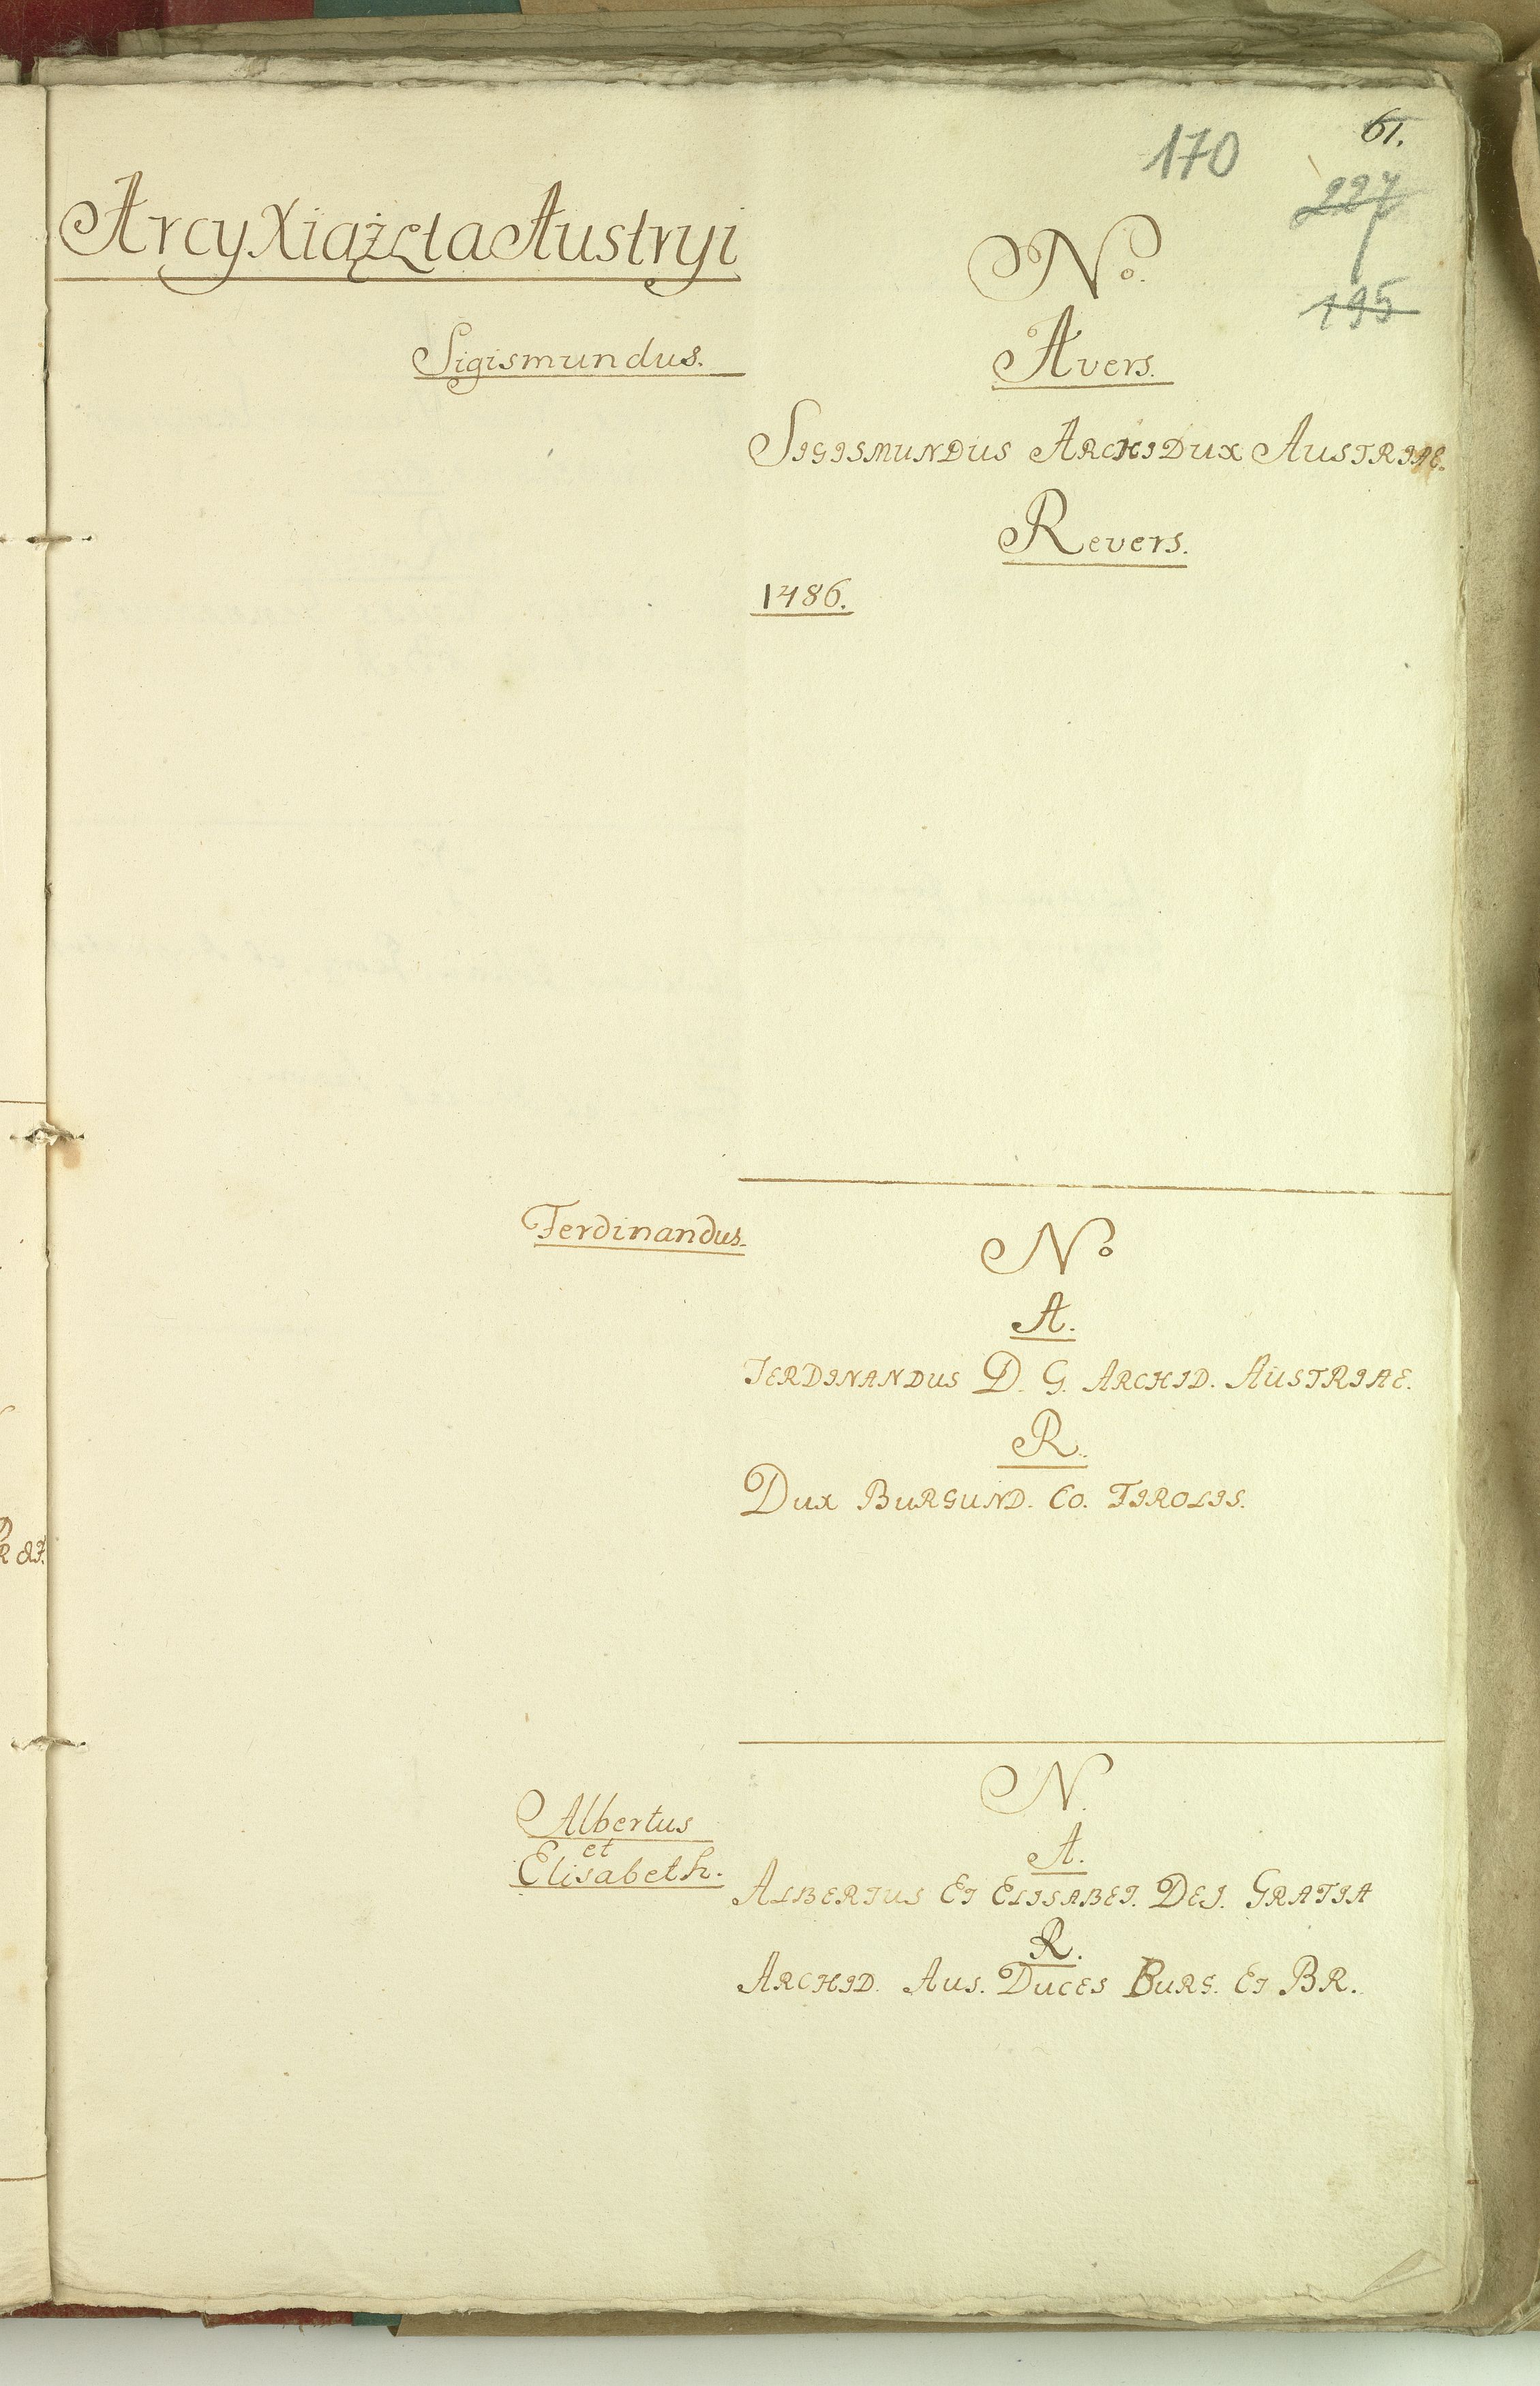 61.
170
227
195
ArcyXiążęta Austryi
No.
Sigismundus.
Avers.
SIGISMUNDUS ARCHIDUX AUSTRIAE.
Revers.
1486.
Ferdinandus.
No
A.
FERDINANDUS D. G. ARCHID. AUSTRIAE.
R.
DUX BURGUND. CO. TIROLIS.
N.
Albertus
et
Elisabeth.
A.
ALBERTUS ET ELISABET. DEI. GRATIA
R.
ARCHID. AUS. DUCES BURG. ET BR.